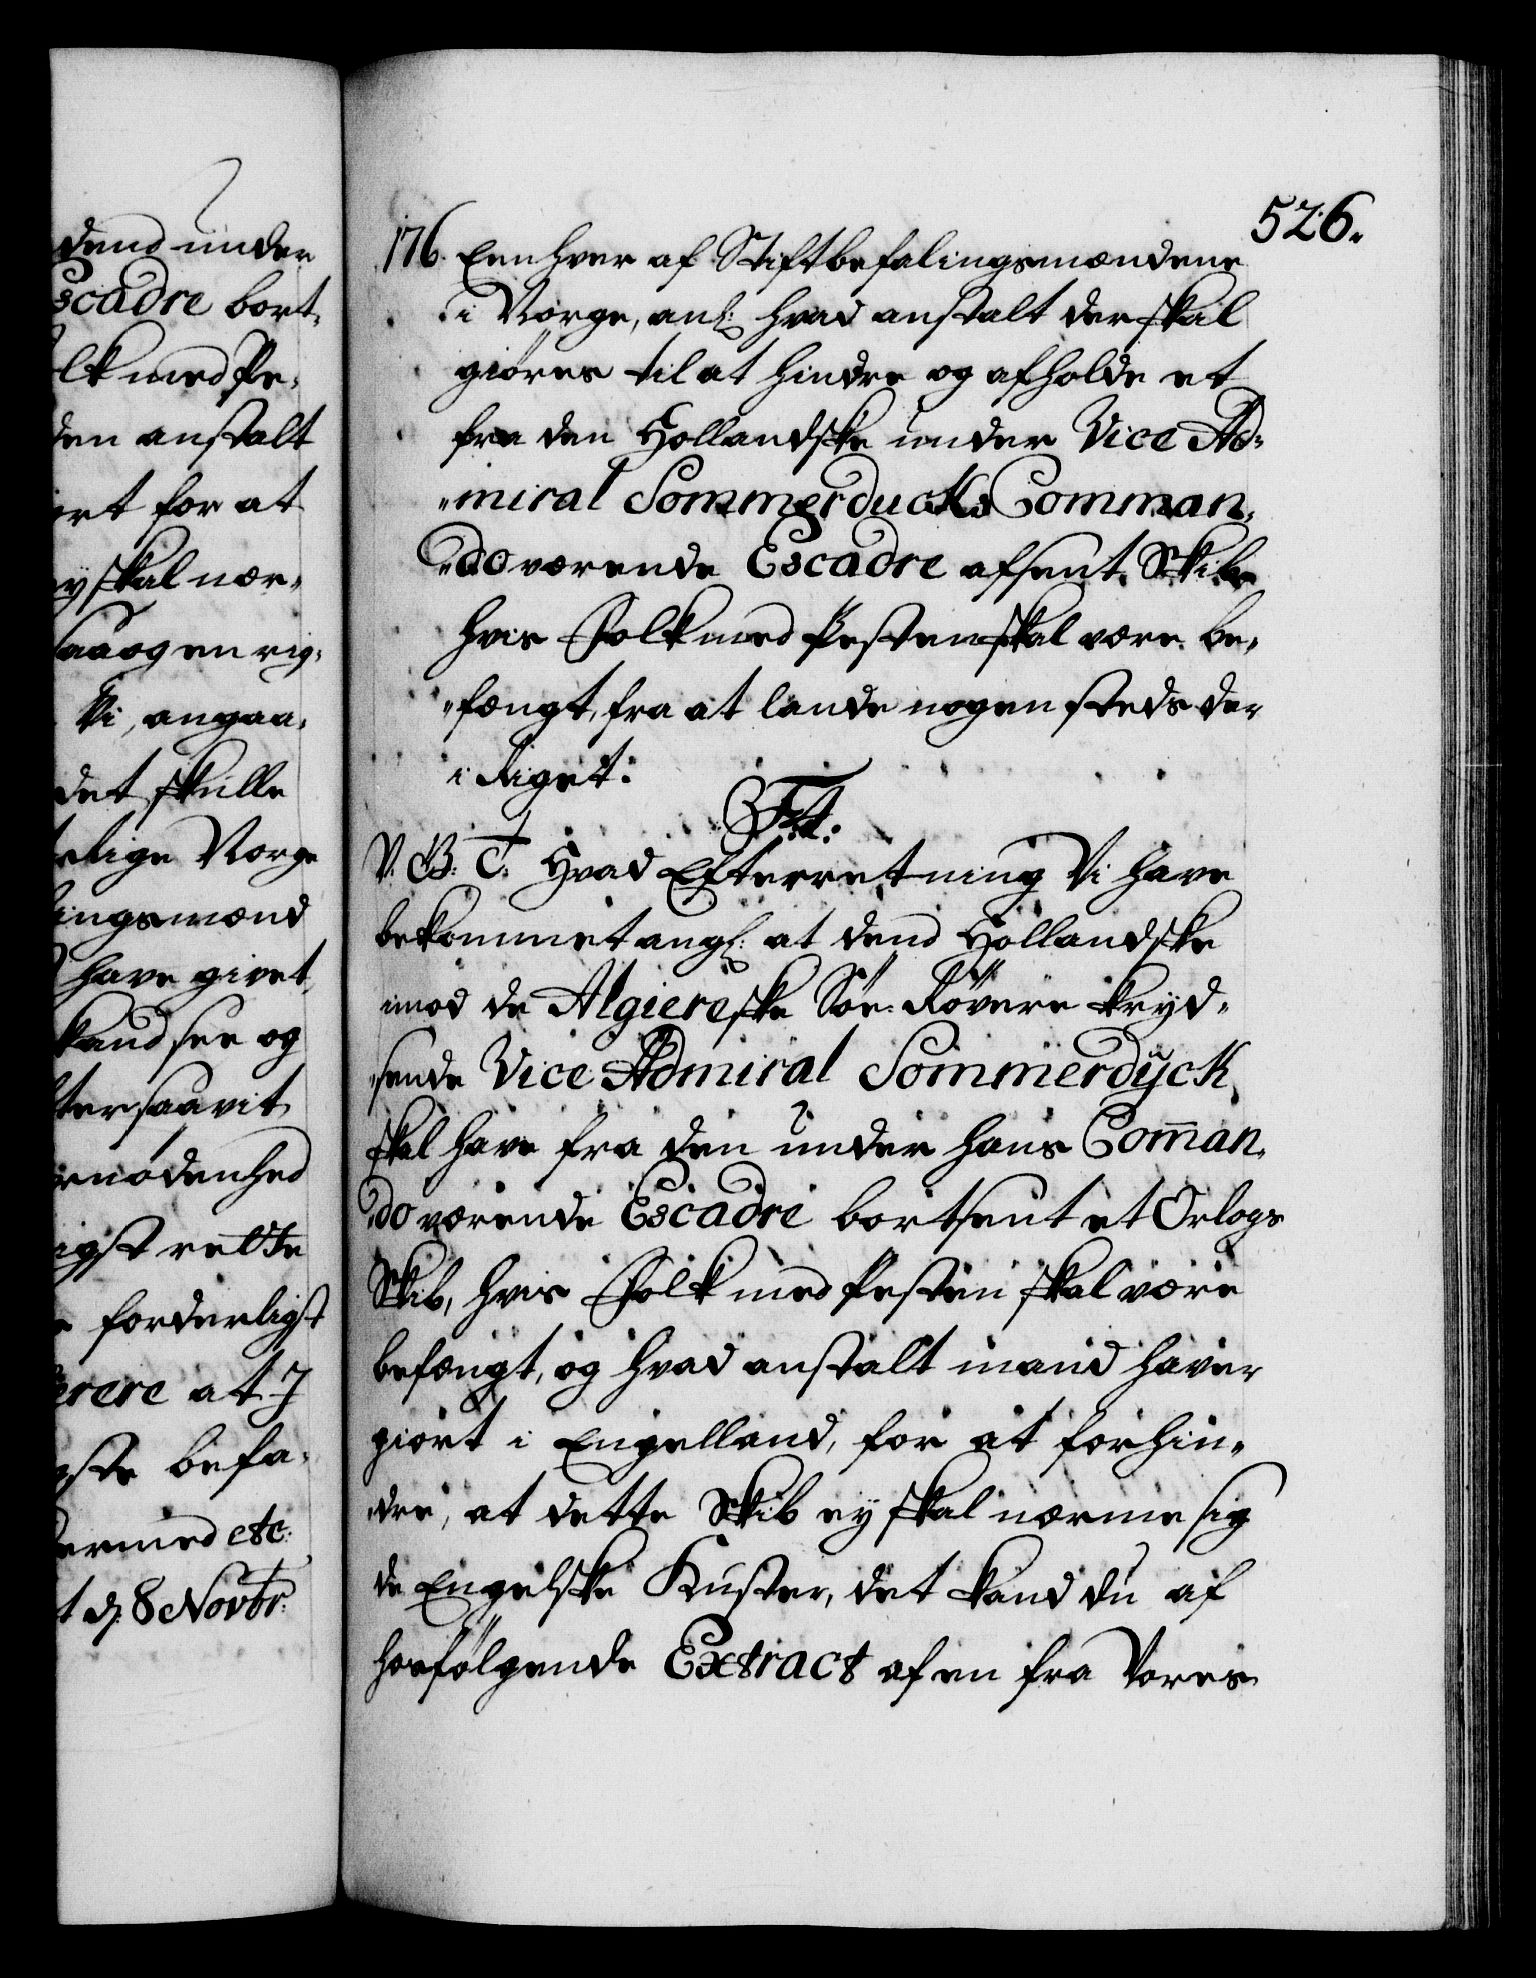 dend under
Escadre bort-
olk med Pe-
den anstalt
iort for at
ey skal nær-
saa og en rig-
Vi, angaa-
det skulle
Norge
lingsmænd
have givet,
kand see og
ter saavit
rnødenhed
igst rette
forderligst
erere at I
gste befa-
dermed etc:
d. 8 Novbr:
526.
176. Een hver af Stiftbefalingsmændene
i Norge, anl: hvad anstalt der skal
giøres til at hindre og afholde et
fra den Hollandske under Vice Ad-
miral Sommerducks Comman-
do værende Escadre afsent Skib
hvis Folk med Pesten skal være be-
fængt, fra at lande nogen steds der
i Riget.
F. 4.
V. G. T. Hvad Efterretning Vi have
bekommet angl: at dend Hollandske
imod de Algiereske Søe-Røvere kryd-
sende Vice Admiral Sommerdÿck
skal have fra den under hans Com̄an-
do værende Escadre bortsent et Orlogs
Skib, hvis Folk med Pesten skal være
befængt, og hvad anstalt mand haver
giort i Engelland, for at forhin-
dre, at dette Skib ey skal nærme sig
de Engelske Kuster, det kand du af
hosfølgende Extract af en fra Vores